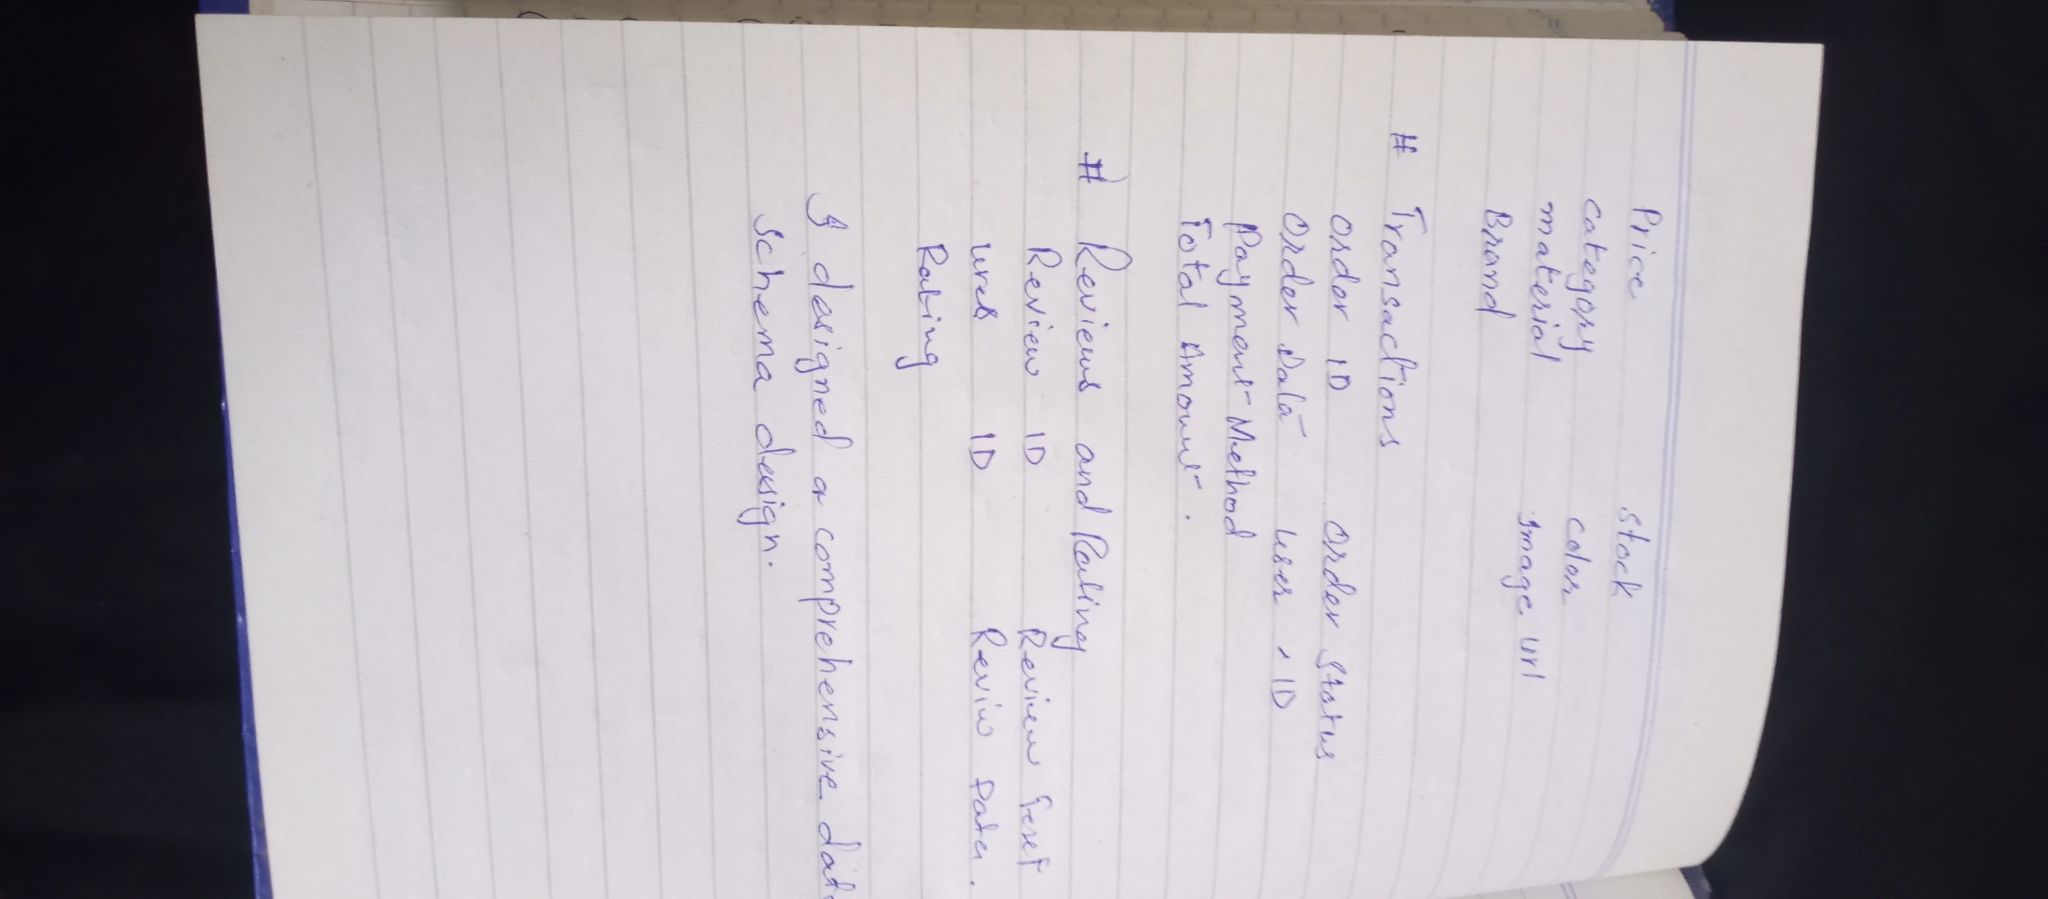 Price Stock
Category Color
material Image url
Brand
# Transactions
Order ID Order Status
Order Data User, ID
Payment Method
Total Amount.
# Reviews and Rating
Review ID Review
ID Reviw Date.
Rating
I designed a comprehensive
Schema design.